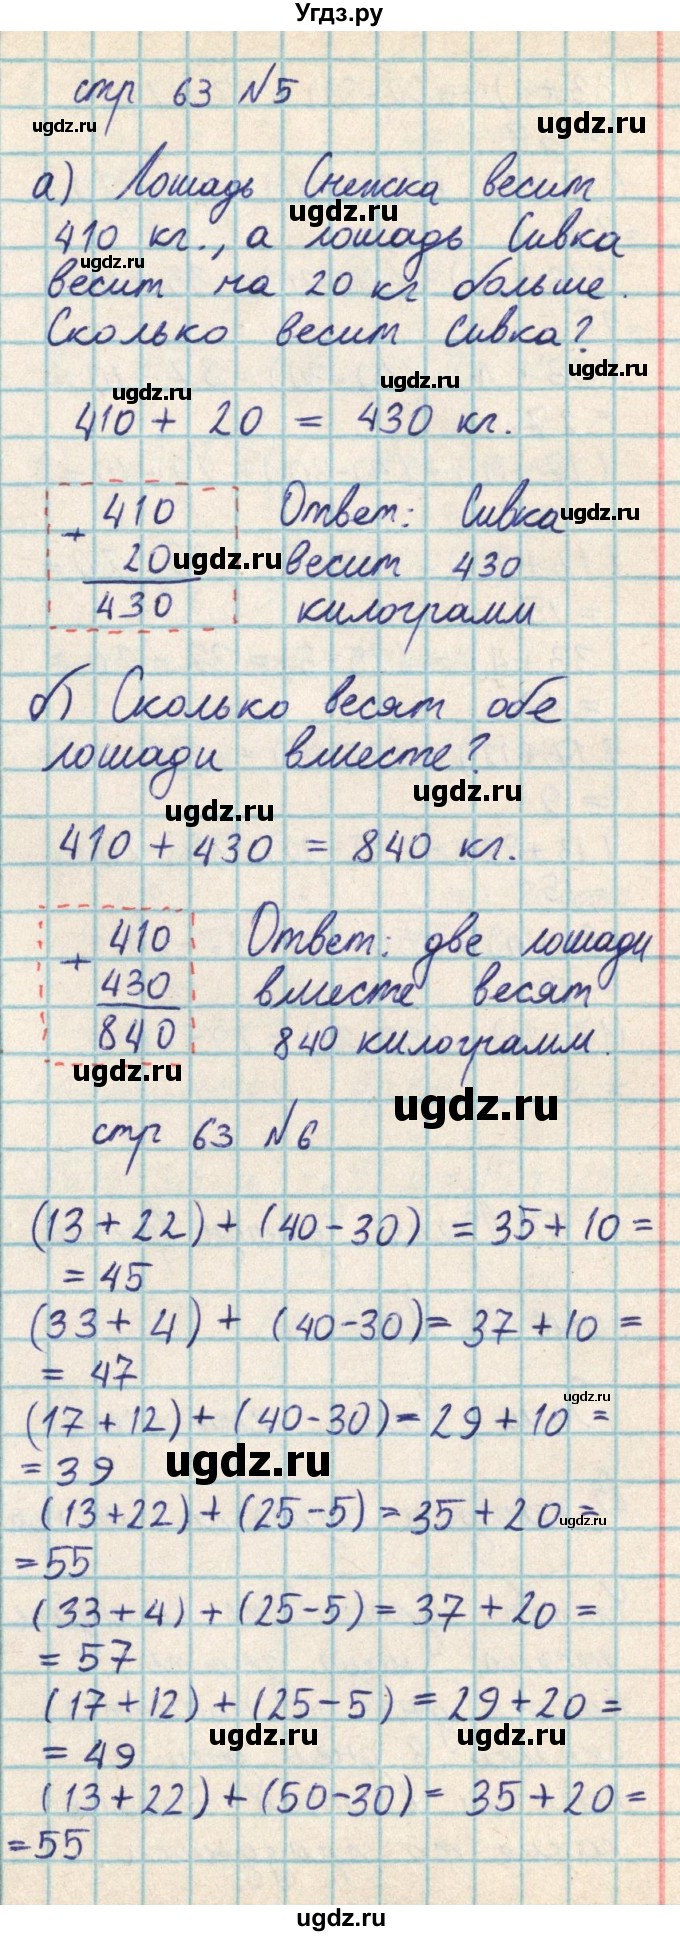 Угдз.ру
стр 63 №5
ugdz.ru
ugdz.ru
а) Лошадь Снежка весит
ugdz.ru
410 кг., а лошадь Сивка
ugdz.ru
весит на 20 кг больше.
Сколько весит Сивка?
ugdz.ru
ugdz.ru
ugdz.ru
410 + 20 = 430 кг.
410
+
20
430
ugdz.ru
ugdz.ru
Ответ: Сивка
весит 430
килограмм
б) Сколько весят обе
лошади вместе?
ugdz.ru
ugdz.ru
410 + 430 = 840 кг.
410
+
430
840
Ответ: две лошади
вместе весят
840 килограмм.
ugdz.ru
ugdz.ru
стр 63 №6
(13 + 22) + (40 - 30) = 35 + 10 =
= 45
(33 + 4) + (40 - 30) = 37 + 10 =
= 47
ugdz.ru
(17 + 12) + (40 - 30) = 29 + 10 =
= 39
ugdz.ru
(13 + 22) + (25 - 5) = 35 + 20 =
ugdz.ru
= 55
(33 + 4) + (25 - 5) = 37 + 20 =
= 57
(17 + 12) + (25 - 5) = 29 + 20 =
ugdz.ru
ugdz.ru
= 49
(13 + 22) + (50 - 30) = 35 + 20 =
= 55
ugdz.ru